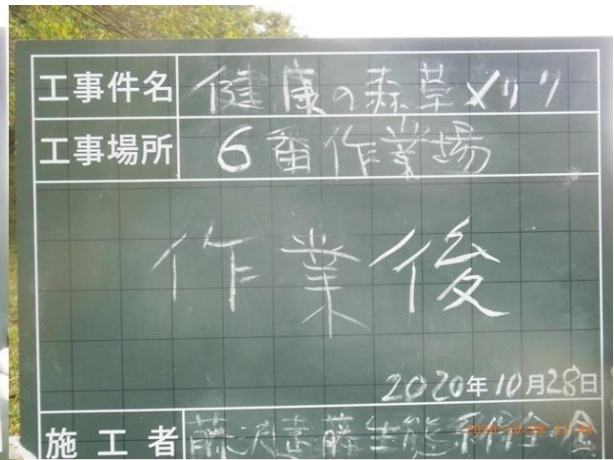 工事件名 健康の森草メリリ
工事場所 6番作業場
作業後
2020年10月28日
施工者 藤沢遠藤生態系保全会